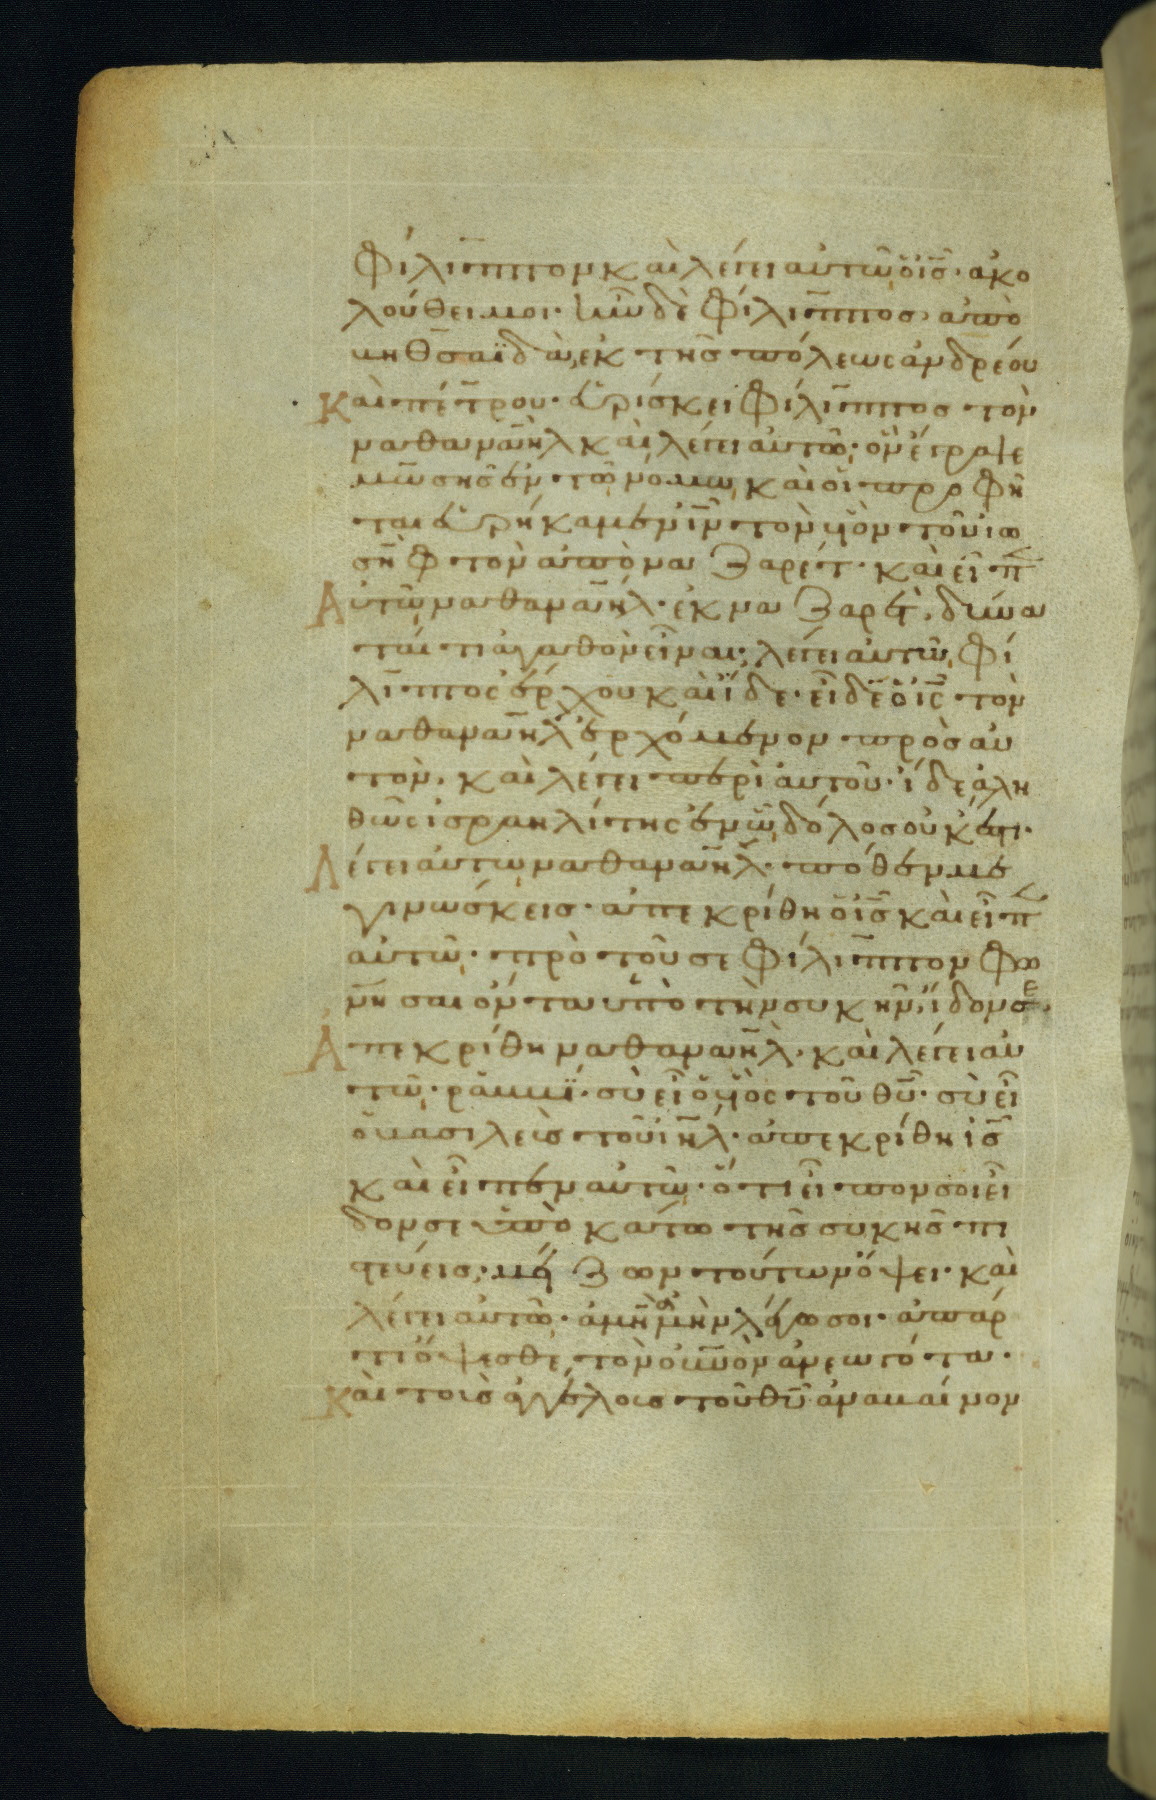 Φίλιππον καὶ λέγει αὐτῶ ὁ ἰ̅ς̅· ἀκο
λούθει μοι· ἦν δὲ Φίλιππος ἀπὸ
βηθσαϊδὰ, ἐκ τῆς πόλεως ἀνδρέου
καὶ πέτρου· εὑρίσκει Φίλιππος τὸν
ναθαναὴλ καὶ λέγει αὐτῶ· ὃν ἔγραψε
μωσῆς ἐν τῶ νόμω καὶ οἱ προφῆ
ται εὑρήκαμεν ἰ̅ν̅ τὸν υἱὸν τοῦ ἰω
σὴφ τὸν ἀπὸ ναζαρέτ· καὶ εἶπ
Αὐτῶ ναθαναήλ· ἐκ ναζαρὲτ, δύνα
ταί τι ἀγαθὸν εἶναι; λέγει αὐτῶ Φί
λιππος ἔρχου καὶ ἴδε· εἶδεν ὁ ἰ̅ς̅ τὸν
ναθαναὴλ ἐρχόμενον πρὸς αὐ
τὸν· καὶ λέγει περὶ αὐτοῦ· ἴδε ἀλη
θῶς ἰσραηλίτης ἐν ὧ δόλος οὐκ ἔστι·
Λέγει αὐτῶ ναθαναήλ· πόθεν με
γινώσκεις· ἀπεκρίθη ὁ ἰ̅ς̅ καὶ εἶπ
αὐτῶ· πρὸ τοῦ σε Φίλιππον φω
νῆσαι ὄντα ὑπὸ τὴν συκῆν, ἴδον σε·
Ἀπεκρίθη ναθαναὴλ· καὶ λέγει αὐ
τῶ· ῥαββί· σὺ εἶ ὁ υἱὸς τοῦ θ̅υ̅· σὺ εἶ
ὁ βασιλεὺς τοῦ ἰ̅η̅λ̅· ἀπεκρίθη ἰ̅ς̅
καὶ εἶπεν αὐτῶ· ὅτι εἶπον σοι εἶ
δον σε ὑποκάτω τῆς συκῆς πι
στεύεις· μείζων τούτων ὄψει· καὶ
λέγει αὐτῶ· ἀμὴν ἀμὴν λέγω σοι· ἀπάρ
τι ὄψεσθε, τὸν ο̅υ̅ν̅ο̅ν̅ ἀνεωγότα·
Καὶ τοὺς ἀγγέλους τοῦ θ̅υ̅ ἀναβαίνον